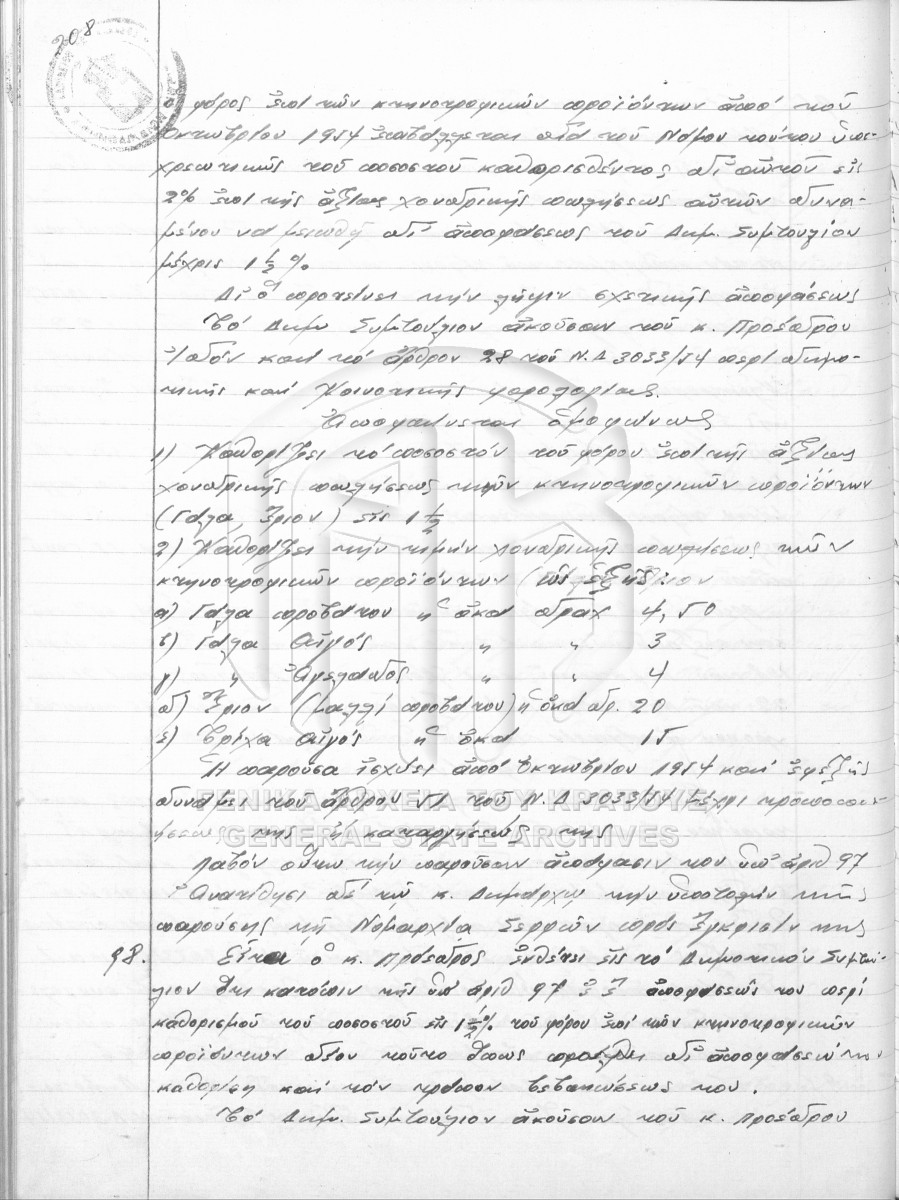 208
ὁ φόρος ἐπὶ τῶν κτηνοτροφικῶν προϊόντων ἀπὸ τοῦ
Ὀκτωβρίου 1954 ἐπιβάλλεται διὰ τοῦ Νόμου τούτου ὑπο-
χρεωτικῶς τοῦ ποσοστοῦ καθορισθέντος δι' αὐτοῦ εἰς
2% ἐπὶ τῆς ἀξίας χονδρικῆς πωλήσεως αὐτῶν δυνα-
μένου νὰ μειωθῇ δι' ἀποφάσεως τοῦ Δημ. Συμβουλίου
μέχρις 1 ½ %.
Δι' ὃ προτείνει τὴν λῆψιν σχετικῆς ἀποφάσεως
Τὸ Δημ. Συμβούλιον ἀκοῦσαν τοῦ κ. Προέδρου
Ἰδὸν καὶ τὸ ἄρθρον 28 τοῦ Ν.Δ 3033/54 περὶ δημο-
τικῆς καὶ Κοινοτικῆς φορολογίας.
Ἀποφαίνεται ὁμοφώνως
1) Καθορίζει τὸ ποσοστὸν τοῦ φόρου ἐπὶ τῆς ἀξίας
χονδρικῆς πωλήσεως τῶν κτηνοτροφικῶν προϊόντων
(Γάλα, ἔριον) εἰς 1 ½
2) Καθορίζει τὴν τιμὴν χονδρικῆς πωλήσεως τῶν
κτηνοτροφικῶν προϊόντων ὡς ἑξῆς:
α) Γάλα προβάτου ἡ ὀκᾶ δραχ 4,50
β) Γάλα Αἰγὸς " " 3
γ) " Ἀγελάδος " " 4
δ) Ἔριον (μαλλὶ προβάτου) ἡ ὀκᾶ δρ. 20
ε) Τρίχα Αἰγὸς ἡ ὀκᾶ 15
Ἡ παροῦσα ἰσχύει ἀπὸ Ὀκτωβρίου 1954 καὶ ἐφεξῆς
δυνάμει τοῦ ἄρθρου τοῦ Ν.Δ 3033/54 μέχρι τροποποι-
ήσεως της ἢ καταργήσεώς της
ΓΕΝΙΚΑ ΑΡΧΕΙΑ ΤΟΥ ΚΡΑΤΟΥΣ
GENERAL STATE ARCHIVES
Λαβὸν οὕτω τὴν παροῦσαν ἀπόφασιν του ὑπ' ἀριθ 97
Ἀνατίθησι δὲ τῷ κ. Δημάρχῳ τὴν ὑποβολὴν τῆς
παρούσης τῇ Νομαρχίᾳ Σερρῶν πρὸς ἔγκρισίν της
98. Εἶτα ὁ κ. Πρόεδρος ἐκθέτει εἰς τὸ Δημοτικὸν Συμβού-
λιον ὅτι κατόπιν τῆς ὑπ' ἀριθ 97 ἀποφάσεώς του περὶ
καθορισμοῦ τοῦ ποσοστοῦ εἰς 1½% τοῦ φόρου ἐπὶ τῶν κτηνοτροφικῶν
προϊόντων δέον τοῦτο ὅπως δι' ἀποφάσεώς του
καθορίσῃ καὶ τὸν τρόπον βεβαιώσεως του.
Τὸ Δημ. Συμβούλιον ἀκοῦσαν τοῦ κ. Προέδρου